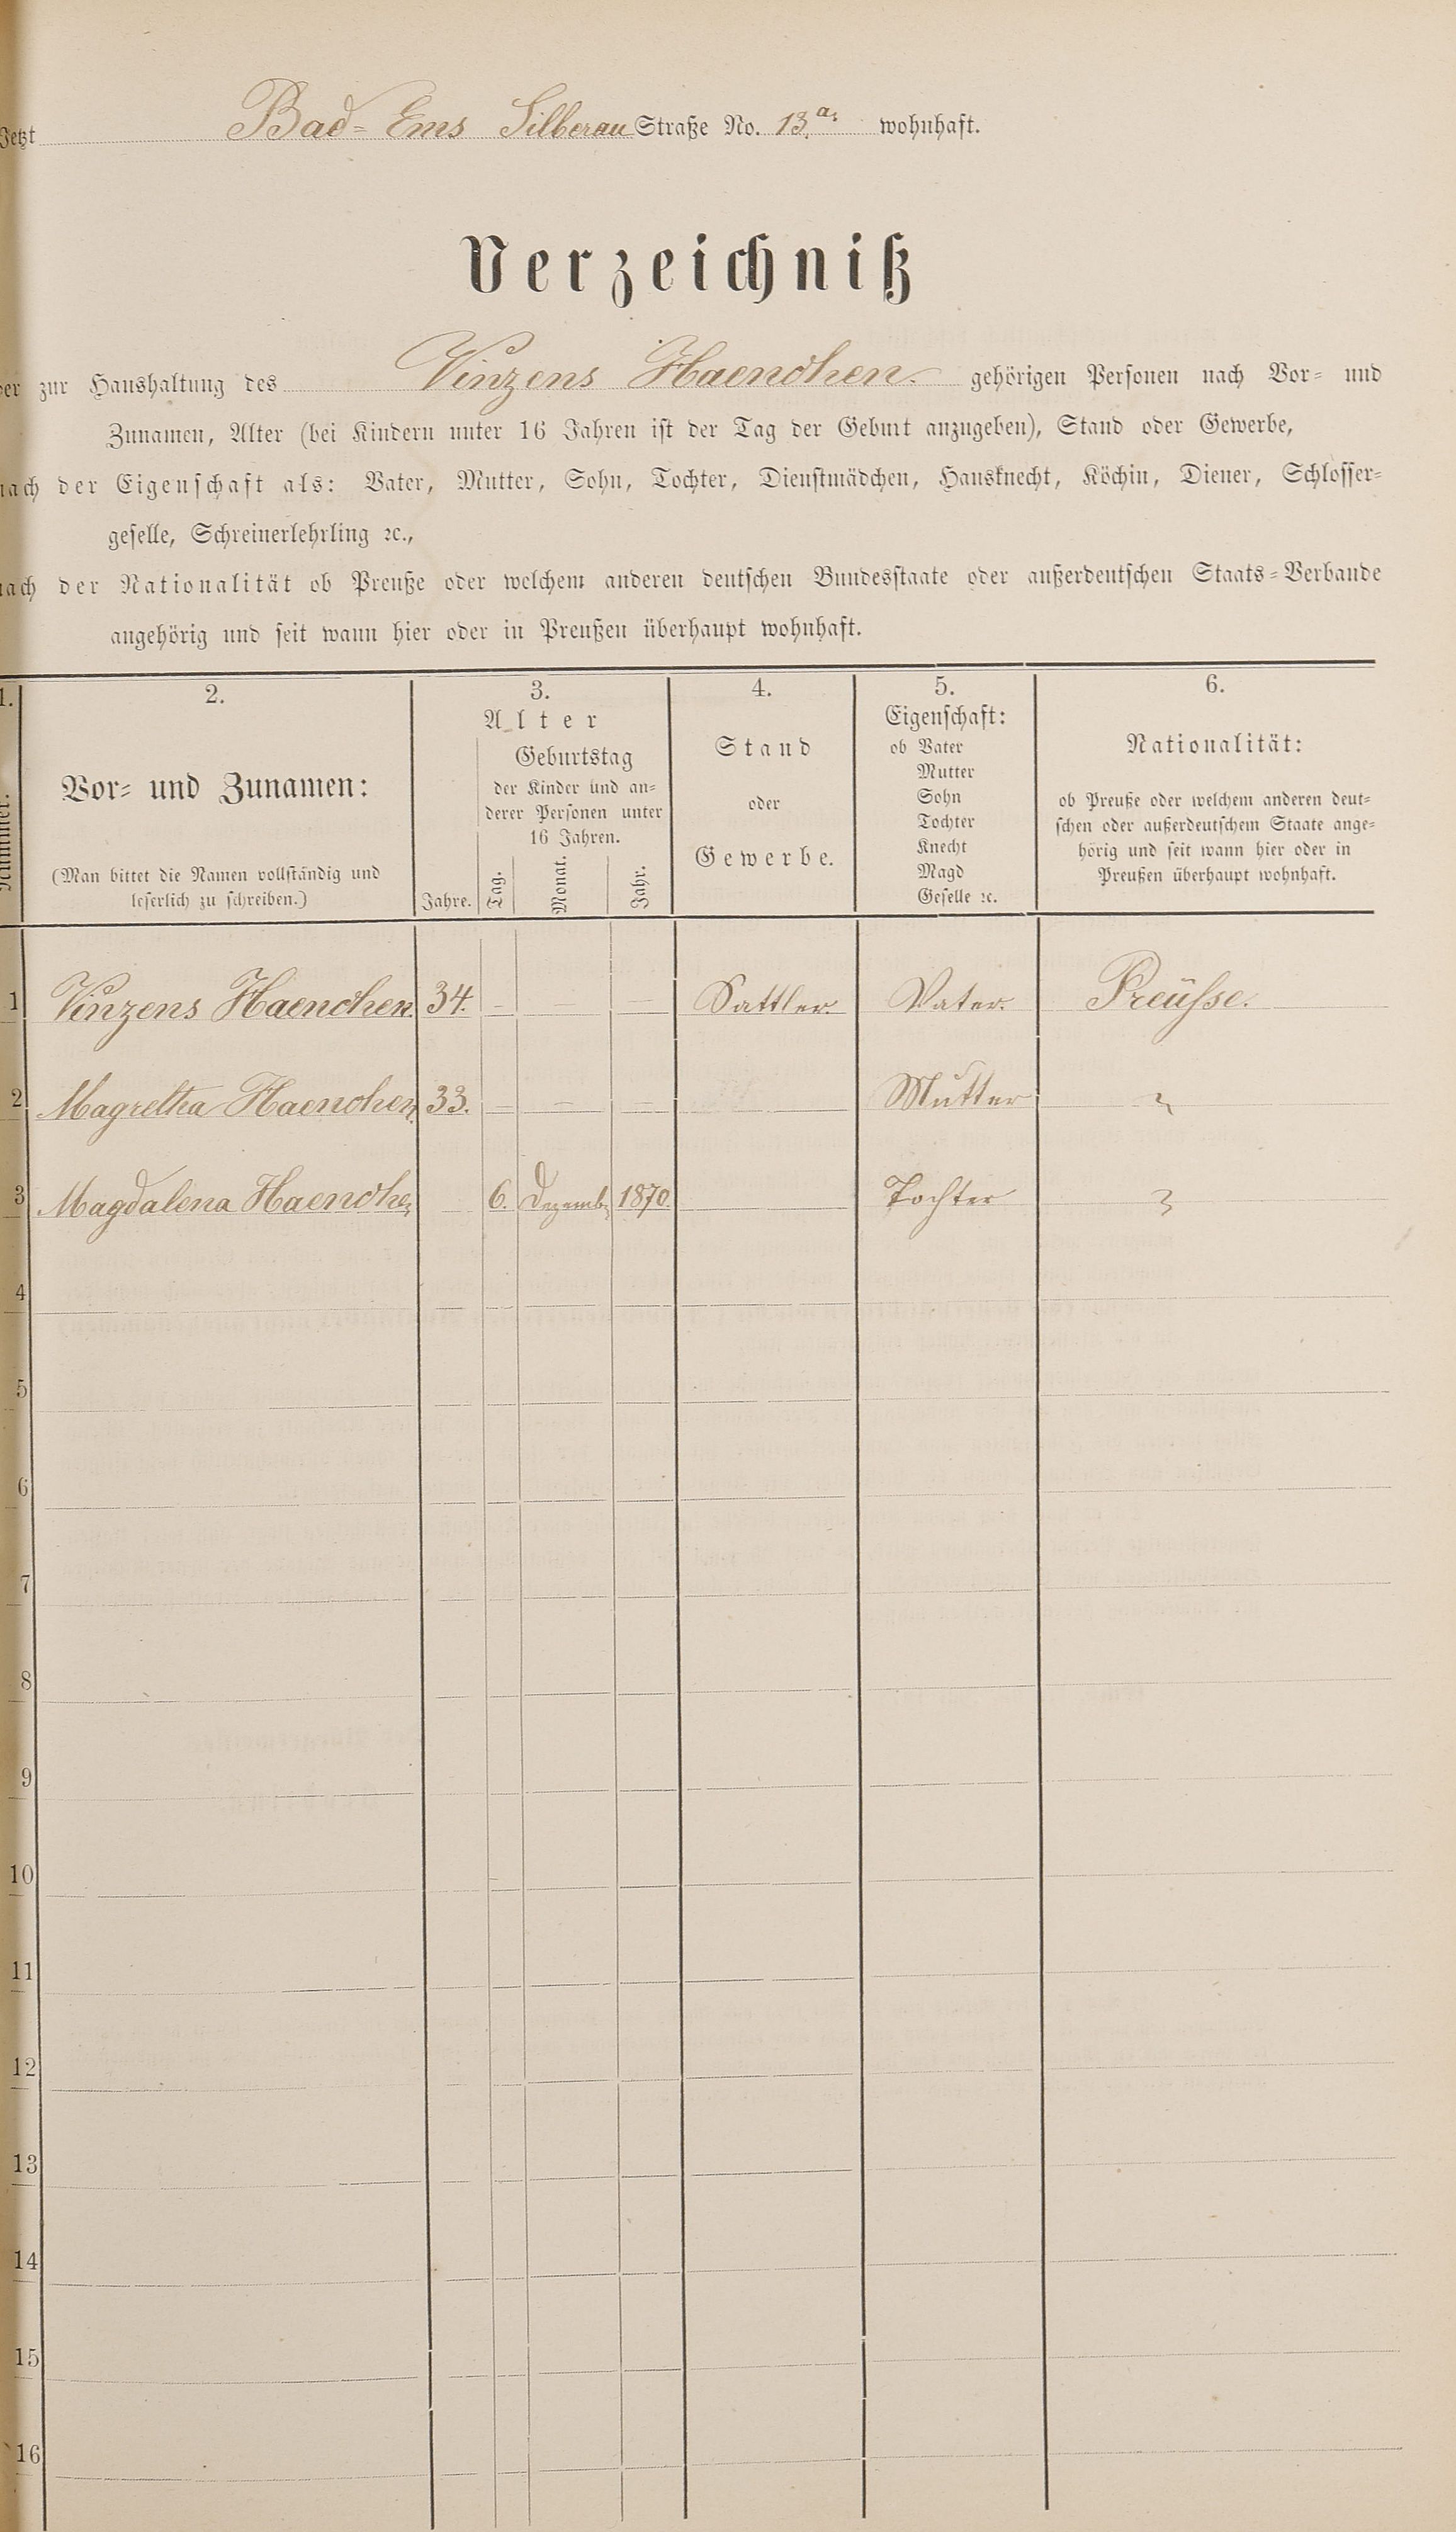 Jetzt Bad-Ems Silberau Straße No. 13.a. wohnhaft.
Verzeichniß
der zur Haushaltung des Vinzens Haenchen. gehörigen Personen nach Vor- und
Zunamen, Alter (bei Kindern unter 16 Jahren ist der Tag der Geburt anzugeben), Stand oder Gewerbe,
nach der Eigenschaft als: Vater, Mutter, Sohn, Tochter, Dienstmädchen, Hausknecht, Köchin, Diener, Schlosser-
geselle, Schreinerlehrling ꝛc.,
nach der Nationalität ob Preuße oder welchem anderen deutschen Bundesstaate oder außerdeutschen Staats-Verbande
angehörig und seit wann hier oder in Preußen überhaupt wohnhaft.
1.
Nummer.
2.
Vor- und Zunamen:
(Man bittet die Namen vollständig und
leserlich zu schreiben.)
3.
Alter
Jahre.
Geburtstag
der Kinder und an-
derer Personen unter
16 Jahren.
Tag.
Monat.
Jahr.
4.
Stand
oder
Gewerbe.
5.
Eigenschaft:
ob Vater
Mutter
Sohn
Tochter
Knecht
Magd
Geselle ꝛc.
6.
Nationalität:
ob Preuße oder welchem anderen deut-
schen oder außerdeutschem Staate ange-
hörig und seit wann hier oder in
Preußen überhaupt wohnhaft.
1 Vinzens Haenchen. 34. – – – Sattler. Vater. Preüsse.
2 Magretha Haenchen. 33. – – – Mutter
3 Magdalena Haenchen 6. Dezemb. 1870. Tochter
4
5
6
7
8
9
10
11
12
13
14
15
16